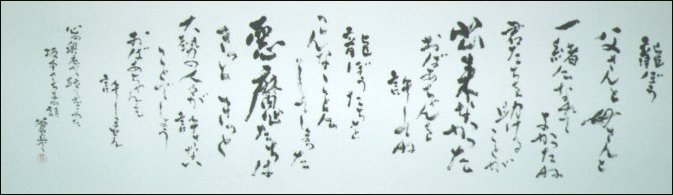 龍ぼう
父さんと母さんと
一緒になれて
よかったね
君たちを助けることが
出来なかった
おばあちゃんを
許してね
龍ぼうたちを
こんなことに
してしまった
悪魔たちは
きっときっと
大勢の人が許さない
ことでしょう
おばあちゃんも
許しません